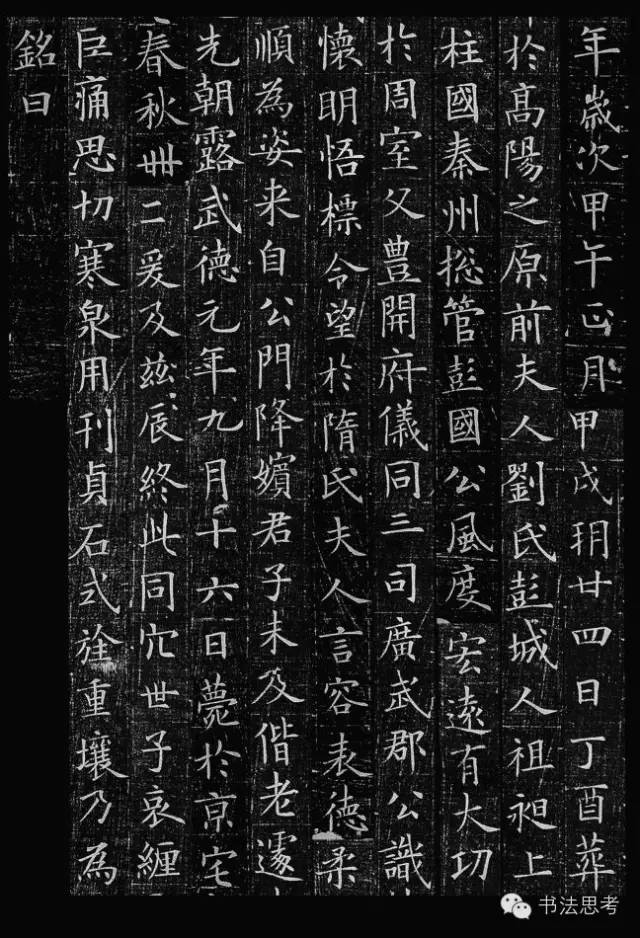 年歲次甲午正月甲戌朔廿四日丁酉葬
於高陽之原前夫人劉氏彭城人祖昶上
柱國秦州揔管彭國公風度宏遠有大切
於周室父豊開府儀同三司廣武郡公識
懷明悟標令望於隋氏夫人言容表德柔
順為姿来自公門降嬪君子未及偕老遽
先朝露武德元年九月十六日薨於京宅
春秋卌二爰及兹辰終此同穴世子哀纏
巨痛思切寒泉用刊貞石式旌重壤乃為
銘曰
书法思考